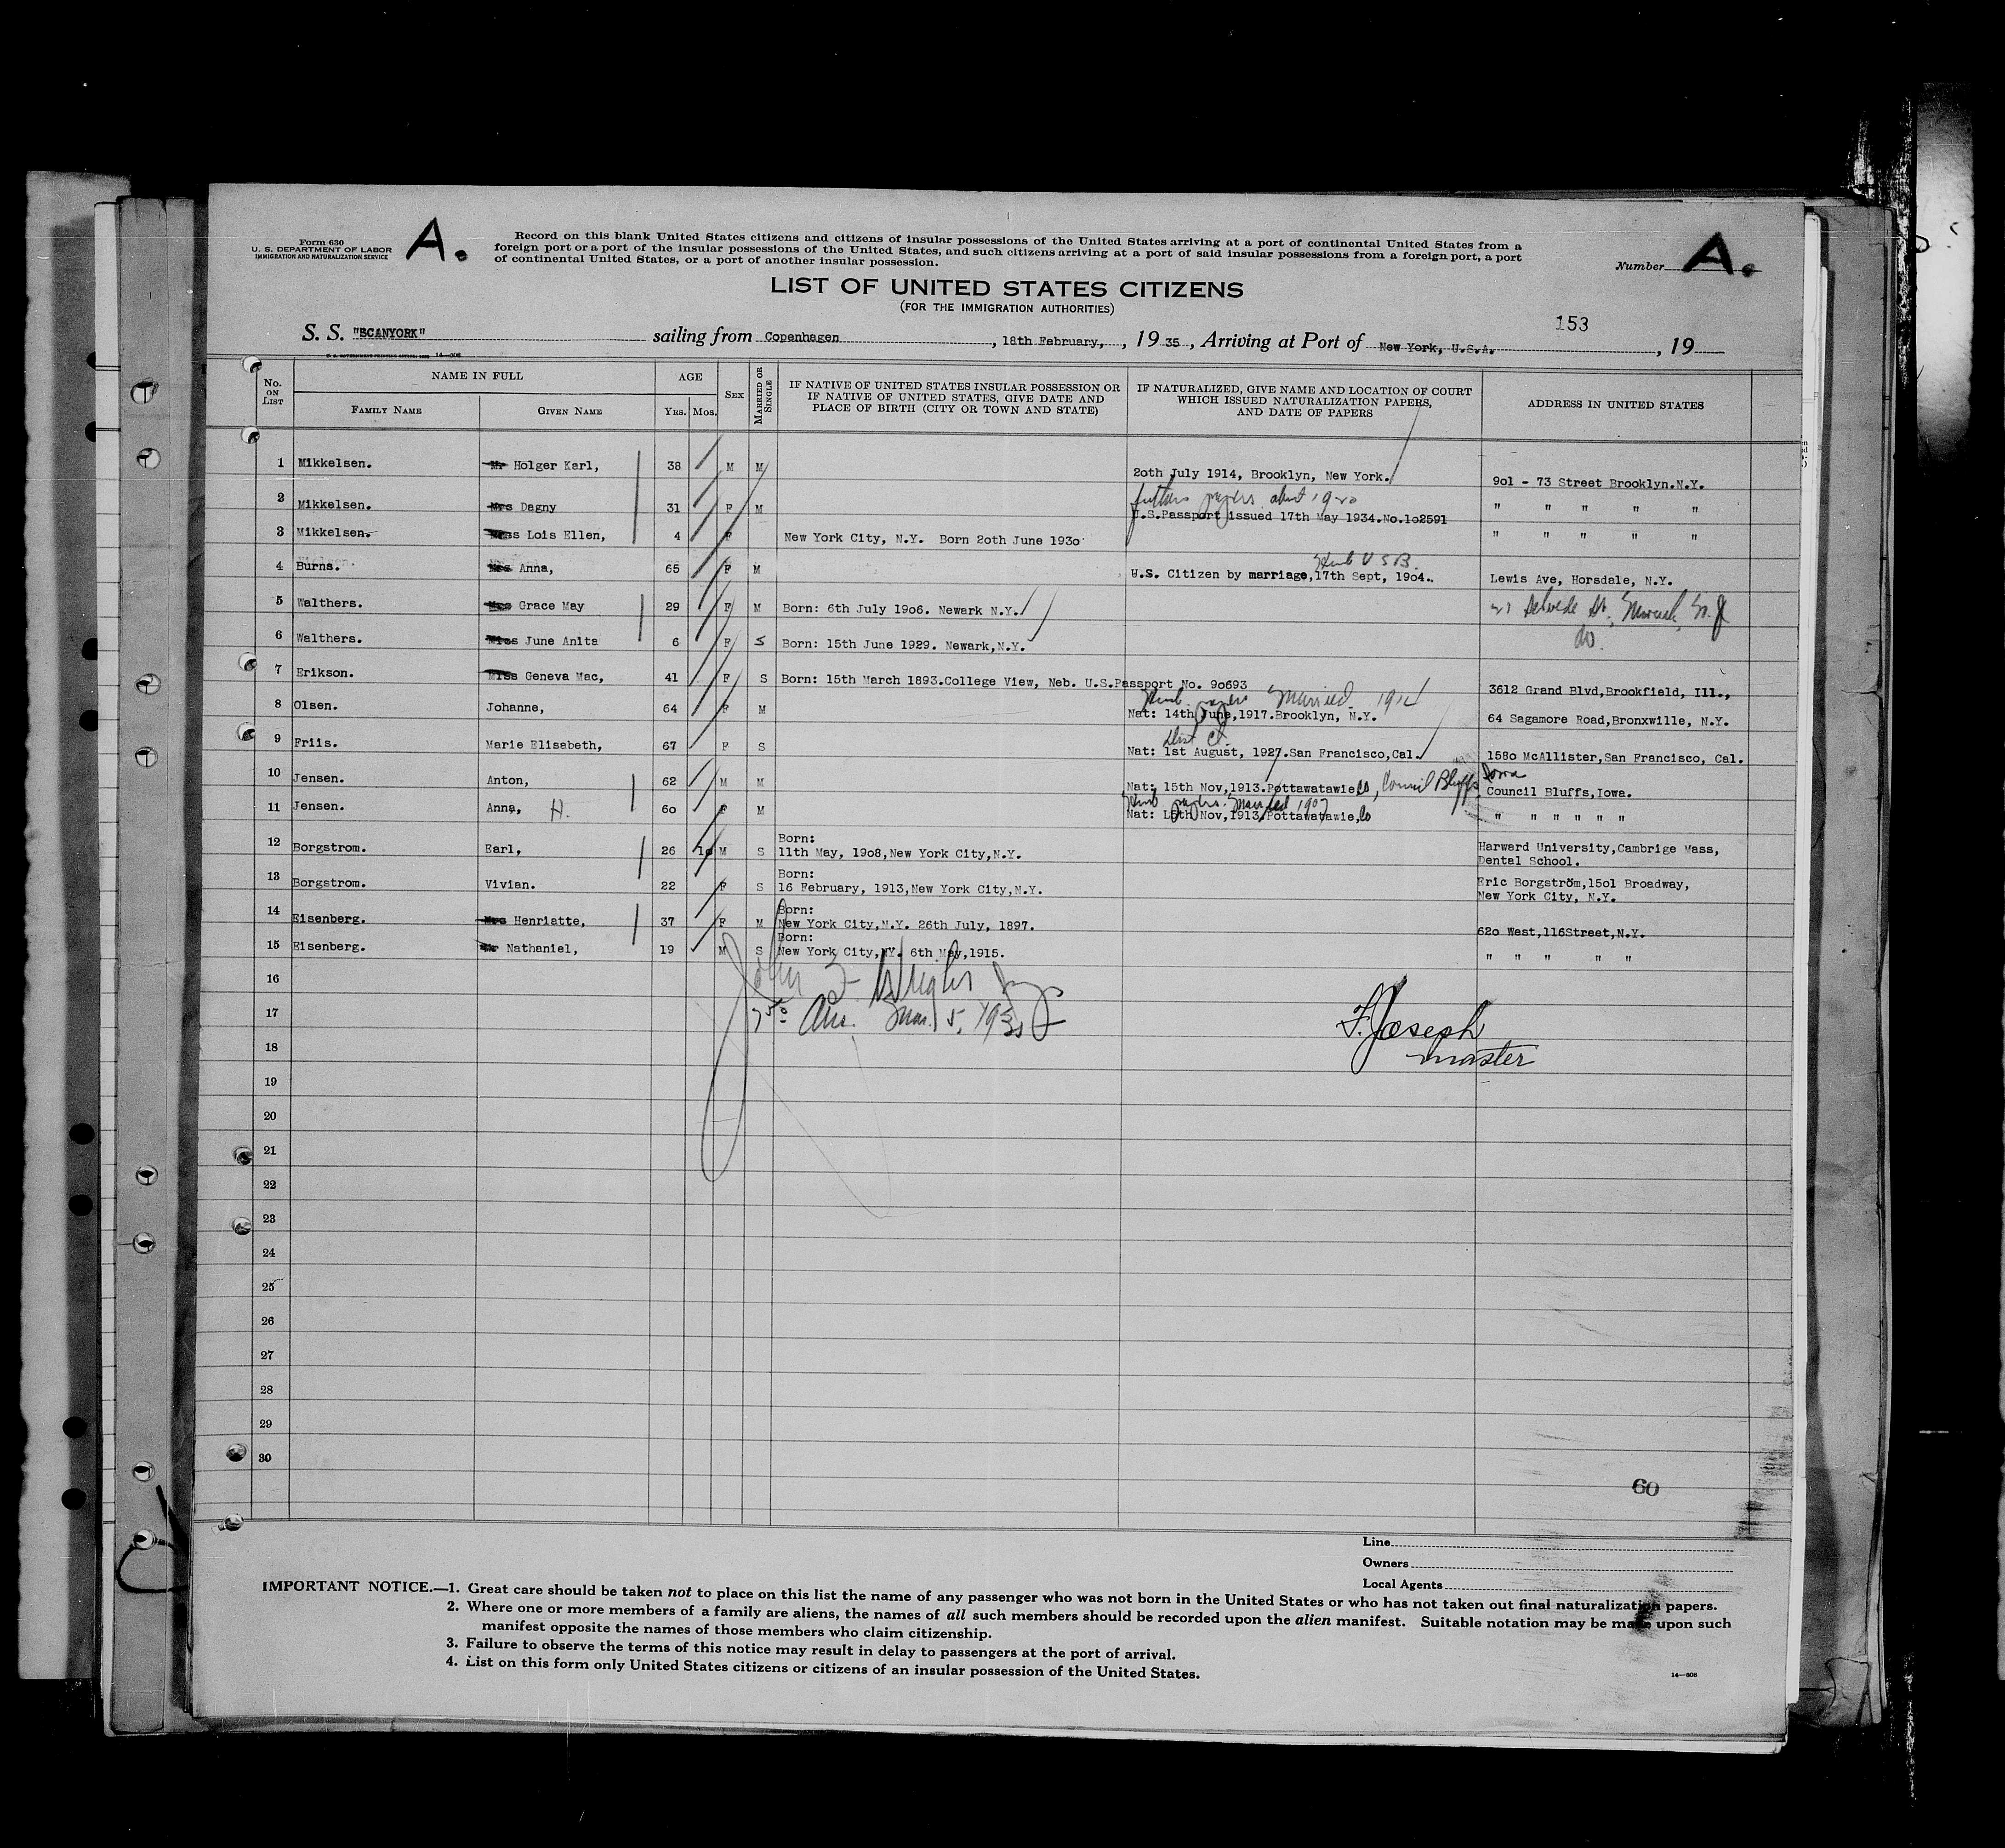 Form 630
U. S. DEPARTMENT OF LABOR
IMMIGRATION AND NATURALIZATION SERVICE
A.
Record on this blank United States citizens and citizens of insular possessions of the United States arriving at a port of continental United States from a
foreign port or a port of the insular possessions of the United States, and such citizens arriving at a port of said insular possessions from a foreign port, a port
of continental United States, or a port of another insular possession.
Number A.
LIST OF UNITED STATES CITIZENS
(FOR THE IMMIGRATION AUTHORITIES)
153
S. S. "SCANYORK" sailing from Copenhagen, 18th February, , 19 35 , Arriving at Port of New York, U.S.A. , 19
14—608
No. ON LIST NAME IN FULL AGE SEX MARRIED OR SINGLE IF NATIVE OF UNITED STATES INSULAR POSSESSION OR IF NATIVE OF UNITED STATES, GIVE DATE AND PLACE OF BIRTH (CITY OR TOWN AND STATE) IF NATURALIZED, GIVE NAME AND LOCATION OF COURT WHICH ISSUED NATURALIZATION PAPERS, AND DATE OF PAPERS ADDRESS IN UNITED STATES
FAMILY NAME GIVEN NAME YRS. MOS.
1 Mikkelsen. Mr Holger Karl, 38 M M 2oth July 1914, Brooklyn, New York. 9o1 - 73 Street Brooklyn.N.Y.
fathers papers about 1920
2 Mikkelsen. Mrs Dagny 31 F M U.S.Passport issued 17th May 1934.No.1o2591 " " " " "
3 Mikkelsen. Miss Lois Ellen, 4 F New York City, N.Y. Born 2oth June 193o " " " " "
4 Burns. Mrs Anna, 65 F M U.S. Citizen by marriage,17th Sept, 19o4. Lewis Ave, Horsdale, N.Y.
Husb U S B.
5 Walthers. Mrs Grace May 29 F M Born: 6th July 19o6. Newark N.Y. St., Newark, N. J
6 Walthers. Miss June Anita 6 F S Born: 15th June 1929. Newark,N.Y. do.
7 Erikson. Miss Geneva Mac, 41 F S Born: 15th March 1893.College View, Neb. U.S.Passport No. 9o693 3612 Grand Blvd,Brookfield, Ill.,
Husb. papers Married 1914
8 Olsen. Johanne, 64 F M Nat: 14th June,1917.Brooklyn, N.Y. 64 Sagamore Road,Bronxwille, N.Y.
Dist Ct.
9 Friis. Marie Elisabeth, 67 F S Nat: 1st August, 1927.San Francisco,Cal. 158o McAllister,San Francisco, Cal.
10 Jensen. Anton, 62 M M Nat: 15th Nov,1913.Pottawatawie Co, Council Bluffs, Iowa Council Bluffs,Iowa.
Husb papers. Married 1907
11 Jensen. Anna, H. 6o F M Nat: 15th Nov,1913,Pottawatawie,Co " " " " " "
12 Borgstrom. Earl, 26 1o M S Born: 11th May, 19o8,New York City,N.Y. Harward University,Cambrige Mass, Dental School.
13 Borgstrom. Vivian. 22 F S Born: 16 February, 1913,New York City,N.Y. Eric Borgström,15o1 Broadway, New York City, N.Y.
14 Eisenberg. Mrs Henriatte, 37 F M Born: New York City,N.Y. 26th July, 1897. 62o West,116Street,N.Y.
15 Eisenberg. Mr Nathaniel, 19 M S Born: New York City,NY. 6th May,1915. " " " " "
16
John
17
Mar. 5, 1935
F. Joseph
18
master
19
20
21
22
23
24
25
26
27
28
29
30
60
Line
Owners
Local Agents
IMPORTANT NOTICE.—1. Great care should be taken not to place on this list the name of any passenger who was not born in the United States or who has not taken out final naturalization papers.
2. Where one or more members of a family are aliens, the names of all such members should be recorded upon the alien manifest. Suitable notation may be made upon such
manifest opposite the names of those members who claim citizenship.
3. Failure to observe the terms of this notice may result in delay to passengers at the port of arrival.
4. List on this form only United States citizens or citizens of an insular possession of the United States.
14—608